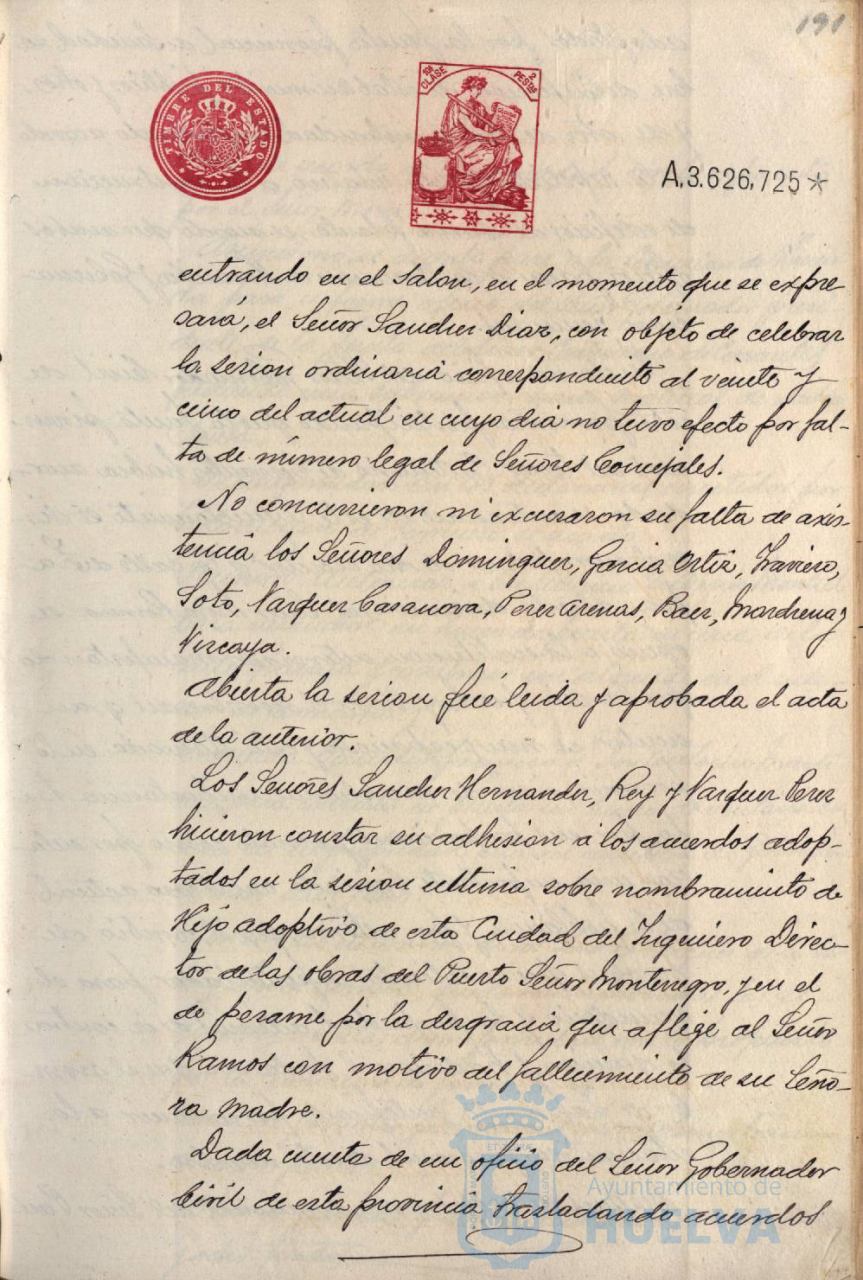 191
TIMBRE DEL ESTADO
10ª CLASE 2 PESTAS
A.3.626.725*
entrando en el Salon, en el momento que se expre-
sará, el Señor Sanchez Diaz, con objeto de celebrar
la sesion ordinaria correspondiente al veinte y
cinco del actual en cuyo dia no tuvo efecto por fal-
ta de número legal de Señores Concejales.
No concurrieron ni excusaron su falta de axis-
tencia los Señores Dominguez, Garcia Ortiz,
Soto, Vazquez Casanova, Perez Arenas, Baez, Mardrena y
Vizcaya.
Abierta la sesion fué leida y aprobada el acta
de la anterior.
Los Señores Sanchez Hernandez, Rey y Vazquez Perez
hicieron constar su adhesion á los acuerdos adop-
tados en la sesion ultima sobre nombramiento de
Hijo adoptivo de esta Ciudad del Ingeniero Direc-
tor de las obras del Puerto Señor Montenegro, y en el
de pesame por la desgracia que aflige al Señor
Ramos con motivo del fallecimiento de su Seño-
ra madre.
Dada cuenta de un oficio del Señor Gobernador
Civil de esta provincia trasladando acuerdos
Ayuntamiento de
HUELVA